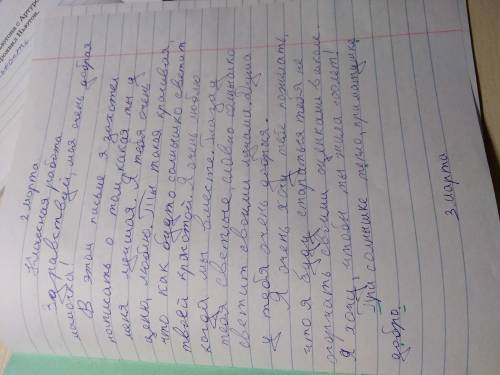 2 марта
Классная работа
Здравствуй, моя очень добрая
мамочка!
В этом письме я захотел
написать о том, какая ты у
меня лучшая. Я тебя очень
ценю, люблю. Ты такая красивая,
что как будто солнышко светит
твоей красотой. Я очень люблю
когда мы вместе. Глаза у
тебя светлые словно солнышко
светит своими лучами. Душа
у тебя очень добрая.
Я очень хочу тебе пожелать,
что я буду стараться тебя не
огорчать своими оценками в школе.
Я хочу, чтобы ты жила 100 лет!
При солнышке тепло, при матушке
добро.
3 марта